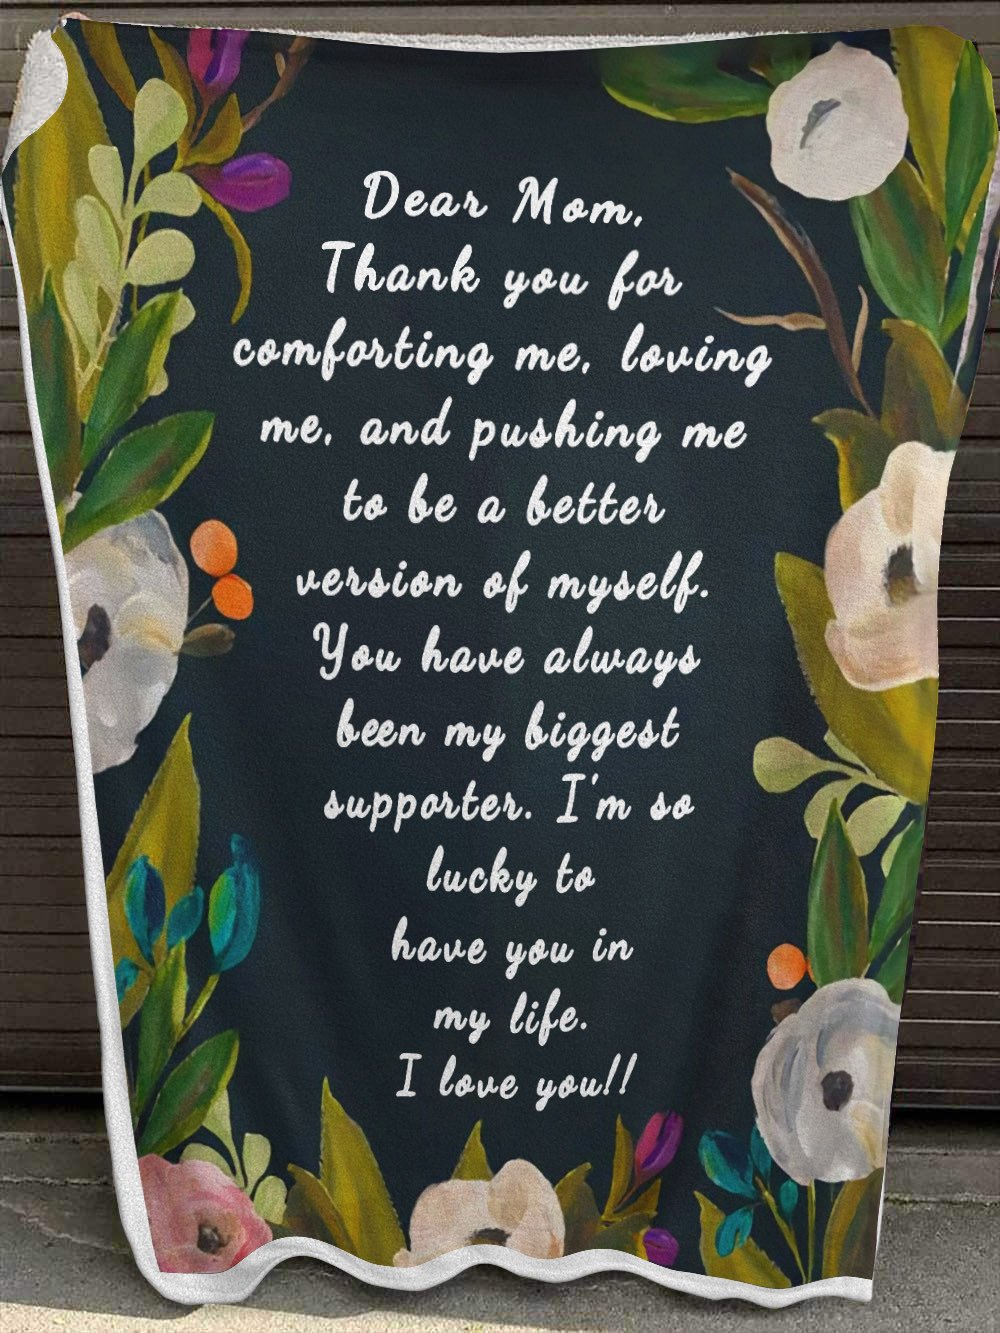 Dear Mom,
Thank you for
comforting me, loving
me, and pushing me
to be a better
version of myself.
You have always
been my biggest
supporter. I'm so
lucky to
have you in
my life.
I love you!!